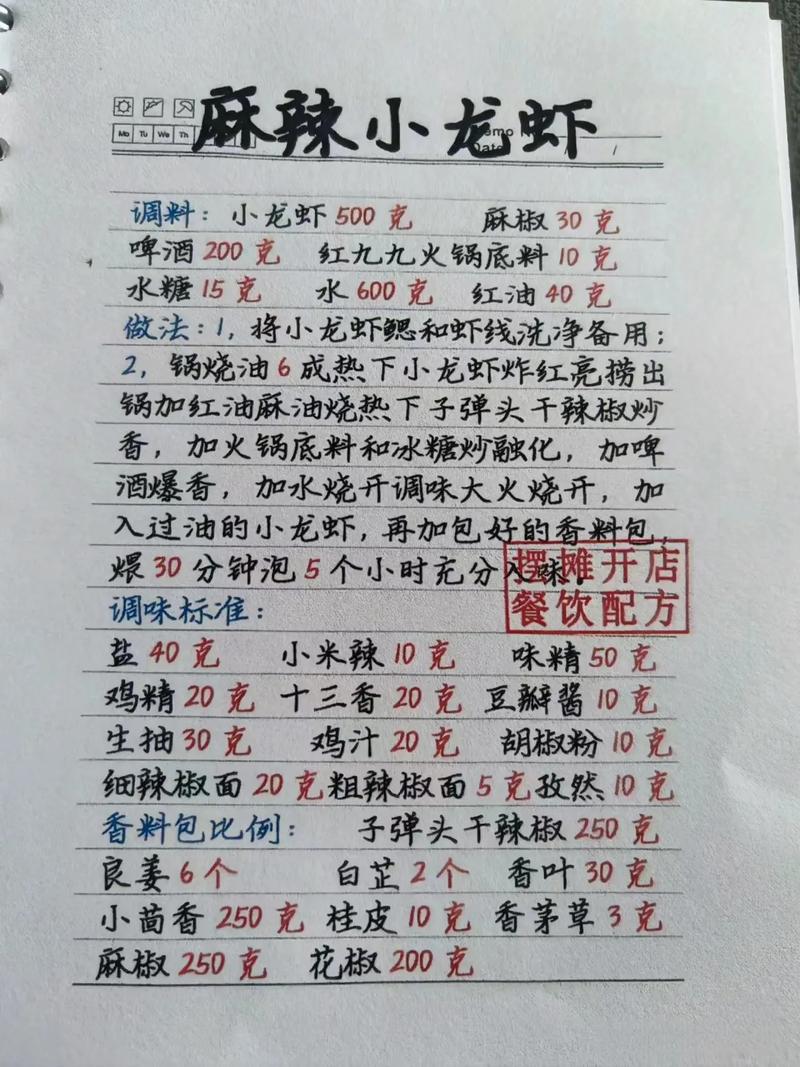 麻辣小龙虾
Mo Tu We Th
调料：小龙虾500克 麻椒30克
啤酒200克 红九九火锅底料10克
水糖15克 水600克 红油40克
做法：1，将小龙虾鳃和虾线洗净备用；
2，锅烧油6成热下小龙虾炸红亮捞出
锅加红油麻油烧热下子弹头干辣椒炒
香，加火锅底料和冰糖炒融化，加啤
酒爆香，加水烧开调味大火烧开，加
入过油的小龙虾，再加包好的香料包，
煨30分钟泡5个小时充分入味。
摆摊开店
餐饮配方
调味标准：
盐40克 小米辣10克 味精50克
鸡精20克 十三香20克 豆瓣酱10克
生抽30克 鸡汁20克 胡椒粉10克
细辣椒面20克 粗辣椒面5克 孜然10克
香料包比例： 子弹头干辣椒250克
良姜6个 白芷2个 香叶30克
小茴香250克 桂皮10克 香茅草3克
麻椒250克 花椒200克